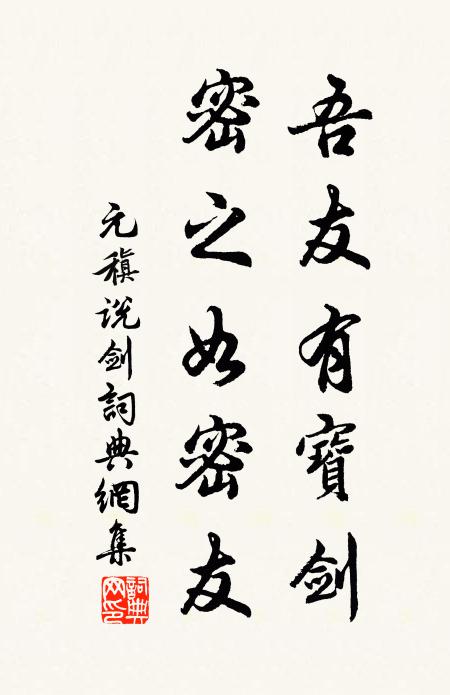 吾友有寶劍
密之如密友
元稹说劍詞典網集
詞典網印